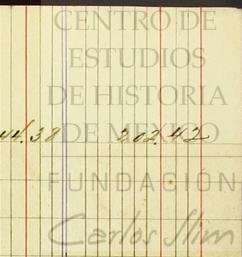 CENTRO DE
ESTUDIOS
DE HISTORIA
DE MEXICO
44.38 202.42
FUNDACIÓN
Carlos Slim